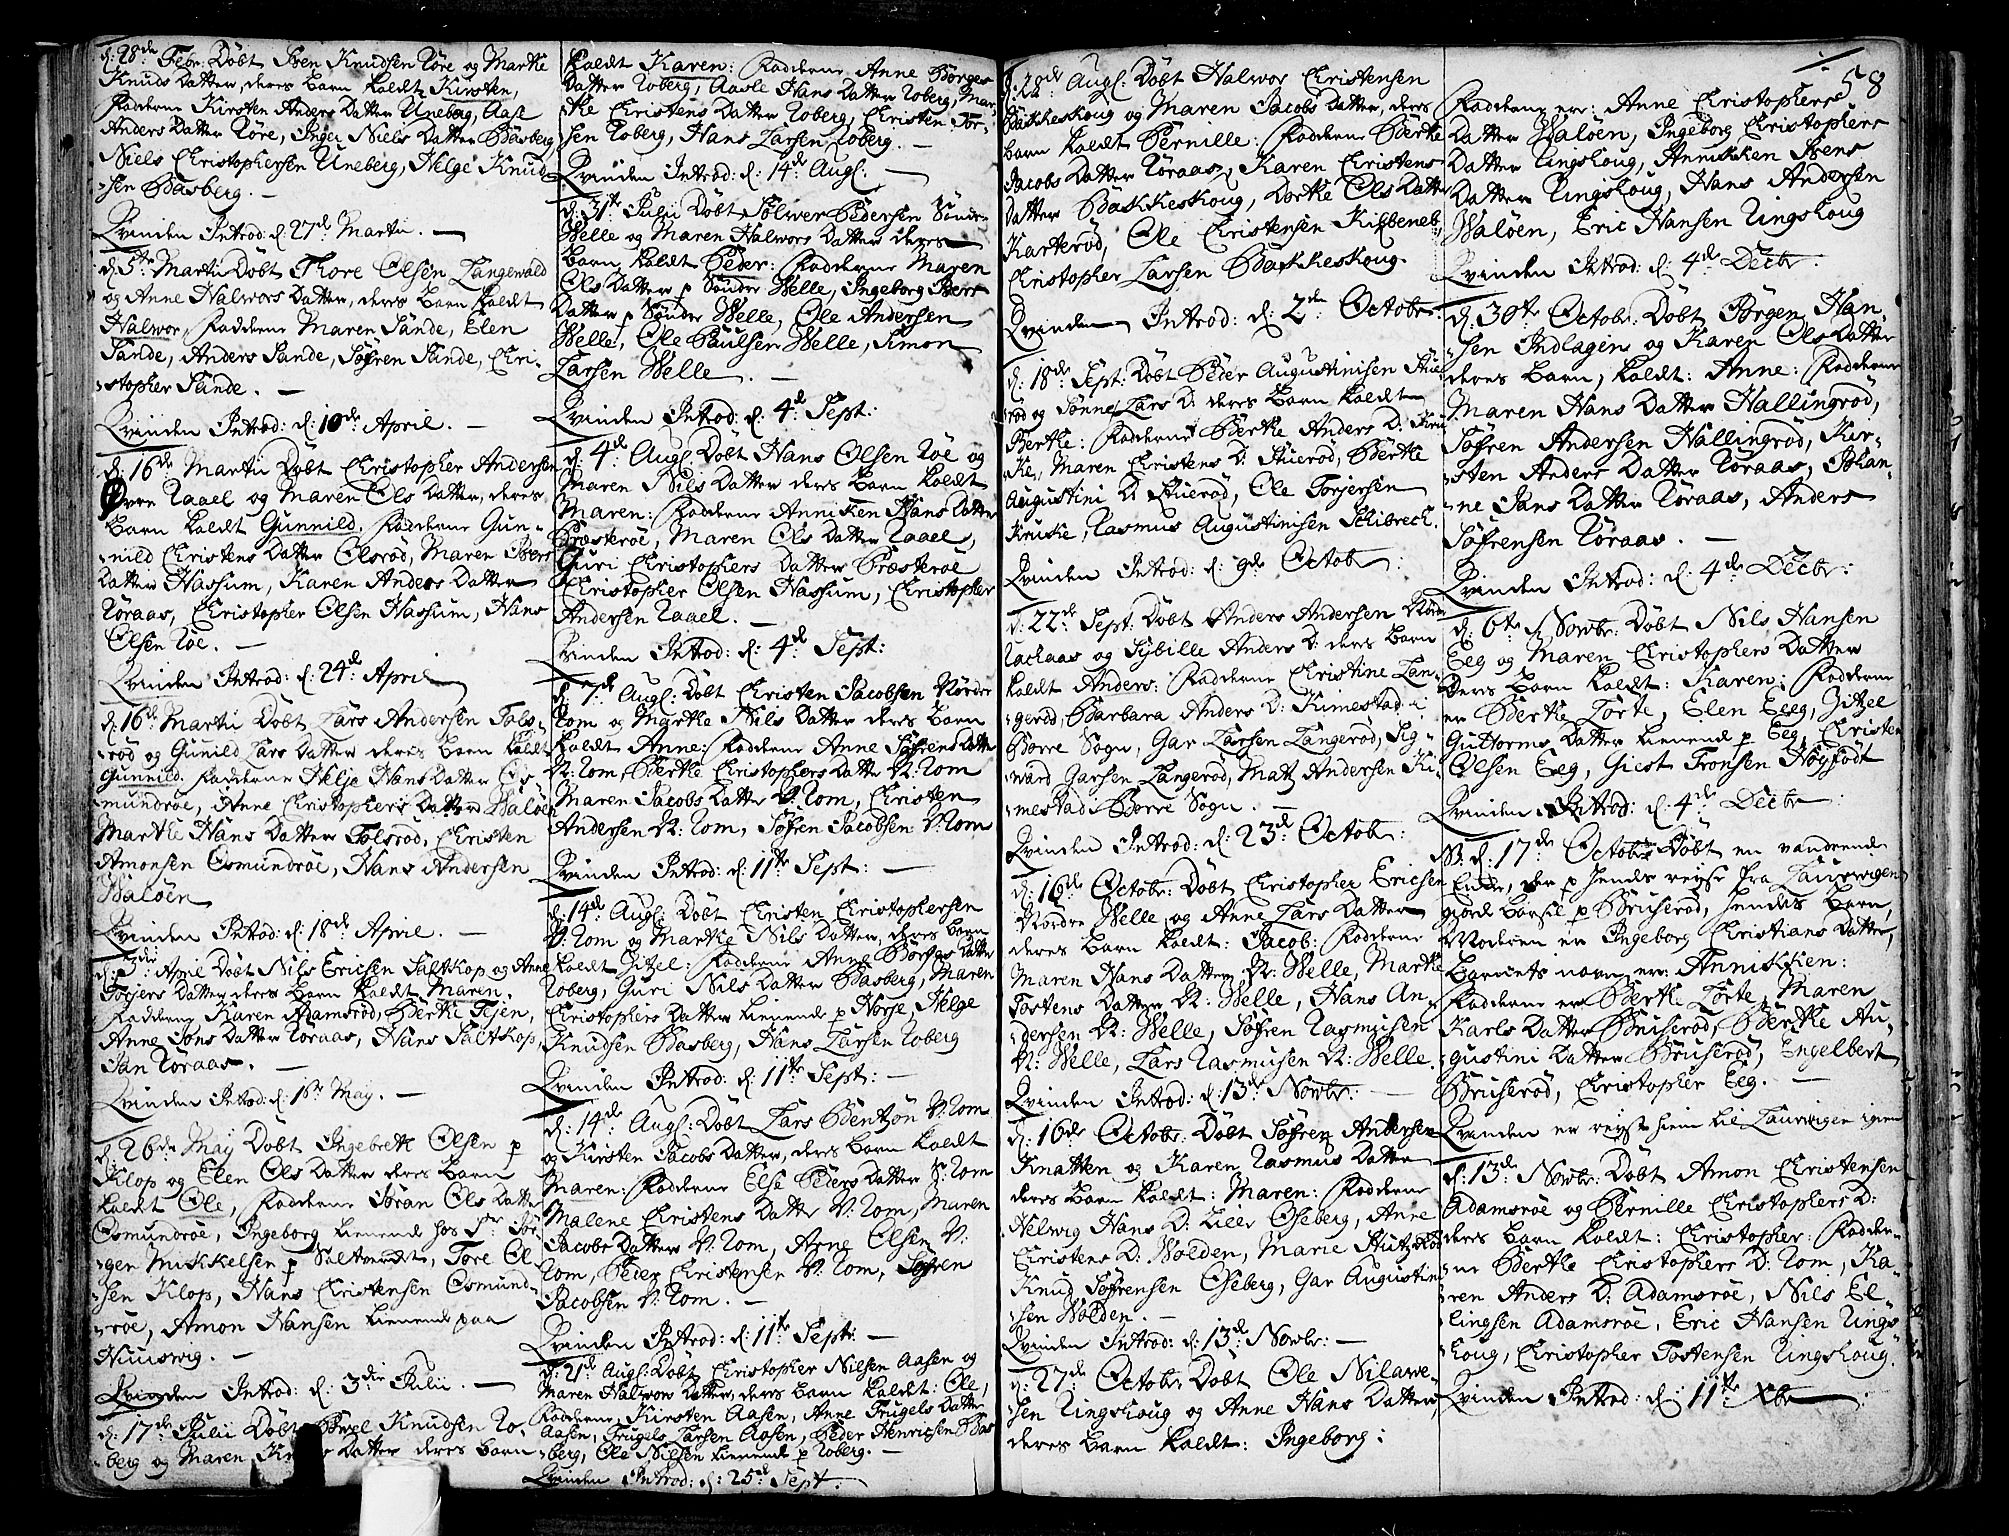 d: 28de Febr: Döbt Sven Knudsen Röre og Marthe
Knuds Datter, deres barn kaldt Kirsten,
Fadderne Kirsten Anders Datter Uneberg, Aase
Anders Datter Röre, Inger Niels Datter Basberg
Niels Christophersen Uneberg, Helge Knud-
-sen Basberg. —
Qvinden Introd: d: 27de Martii. —
d: 5te Martii Döbt Thore Olsen Langevald
og Anne Halvors Datter, deres barn kaldt
Halvor, Fadderne Maren Sande, Elen
Sande, Anders Sande, Söfren Sande, Chri-
-stopher Sande. —
Qvinden Introd: d: 10de April. —
d: 16de Martii Döbt Christopher Andersen
Raael og Maren Ols Datter, deres
barn kaldt Gunnild. Fadderne Gun-
-nild Christens Datter Olsröd, Maren Ivers
Datter Hassum, Karen Anders Datter
Röraas, Christopher Olsen Hassum, Hans
Olsen Röe. —
Qvinden Introd: d: 24de April
d: 16de Martii Döbt Lars Andersen Fals-
-röd og Gunild Lars Datter deres barn kaldt
Gunnild. Fadderne Helje Hans Datter
-mundröe, Anne Christophers Datter Walöen
Marthe Hans Datter Falsröd, Christen
Amonsen Osmundröe, Hans Andersen
Walöen
Qvinden Introd: d: 18de April. —
d: 3die April Döbt Nils Ericsen Saltkop og Anne
Torjers Datter deres barn kaldt Maren.
Fadderne Karen Adamsröd, Berthe Fejen,
Anne Jons Datter Röraas, Hans Saltkop,
Jan Röraas. —
Qvinden Introd: d: 1ste May. —
d: 26de May Döbt Ingebreth Olsen p
Klop og Elen Ols Datter deres barn
kaldt Ole, Fadderne Joran Ols Datter
Osmundröe, Ingeborg tienende hos Sr Jör-
-gen Mikkelsen p Valöen, Tore Ol-
-sen Klop, Hans Christensen Osmund-
-röe, Amon Hansen tienende paa
Huuswig. —
Qvinden Introd: d: 3die Julii. —
d: 17de Julii Döbt Knudsen Ro-
berg og Maren Datter deres barn
kaldt Karen: Fadderne Anne Börges
Datter Roberg, Aasle Hans Datter Roberg, Mar-
the Christens Datter Roberg, Christen Tor-
sen Roberg, Hans Larsen Roberg. —
Qvinden Introd: d: 14de Augl. —
d: 31te Julii Döbt Sölwer Pedersen Sönder
Welle og Maren Halvors Datter deres
barn kaldt Peder: Fadderne Maren
Ols Datter p Sönder Welle, Ingeborg Ivers
Datter p Sönder Welle, Ole Andersen
Welle, Ole Paulsen Welle, Simon
Larsen Welle. —
Qvinden Introd: d: 4de Sept:
d: 4de Augl Döbt Hans Olsen Röe og
Maren Nils Datter deres barn kaldt
Maren: Fadderne Anniken Hans Datter
Præsteröe, Maren Ols Datter Raael,
Guri Christophers Datter Præsteröe
Christopher Olsen Hassum, Christopher
Andersen Raael. —
Qvinden Introd: d: 4de Sept:
d: 7de Augl: Döbt Christen Jacobsen Nordre
Rom og Marthe Nils Datter deres barn
kaldt Anne: Fadderne Anne Söfrens Datter
N: Rom, Berthe Christophers Datter N: Rom
Maren Jacobs Datter N: Rom, Christen
Andersen N: Rom, Söfren Jacobsen N: Rom
Qvinden Introd: d: 11te Sept: —
d: 14de Augl: Döbt Christen Christophersen
N: Rom og Marthe Nils Datter, deres barn
kaldt Zitzel: Fadderne Anne Börges Datter
Roberg, Guri Nils Datter Basberg, Maren
Christophers Datter tienende p Horse, Helge
Knudsen Basberg, Hans Larsen Roberg
Qvinden Introd: d: 11te Sept: —
d: 14de Augl: Döbt Lars Bentzön N: Rom
og Kirsten Jacobs Datter, deres barn kaldt
Maren: Fadderne Else Peders Datter S: Rom
Malene Christens Datter N: Rom, Maren
Jacobs Datter N: Rom, Arne Olsen N:
Rom, Peter Christensen N: Rom, Söfren
Jacobsen N: Rom. —
Qvinden Introd: d: 11te Sept: —
d: 21de Augl: Döbt Christopher Nilsen Aasen og
Maren Halvors Datter, deres barn kaldt: Ole,
Fadderne, Kirsten Aasen, Anne Trugels Datter
Aasen, Trugels Larsen Aasen, Peder Henricsen Bas-
berg, Ole Nielsen tienende p Roberg. —
Qvinden Introd: d: 25de Sept:
58
d: 28de Augl: Döbt Halwor Christensen
Bakkeskoug og Maren Jacobs Datter, deres
barn kaldt Pernille: Fadderne Berthe
Jacobs Datter Röraas, Karen Christens
Datter Bakkeskoug, Dorthe Ols Datter
Karteröd, Ole Christensen
Christopher Larsen Bakkeskoug.
Qvinden Introd: d: 2den Octobr:
d: 18de Sept: Döbt Peder Augustinisen Stue-
röd og Sönne Lars D: deres barn kaldt
Berthe: Fadderne Berthe Anders D: Kni-
ke, Maren Christens D: Stueröd, Berthe
Augustini D: Stueröd, Ole Torjersen
Knike, Rasmus Augustinisen Schibrech.
Qvinden Introd: d: 9de Octob:
d: 22de Sept: Döbt Anders Andersen Nordre
Rachaas og Sybille Anders D: deres barn
kaldt Anders: Fadderne Christine Lan-
-geröd, Barbara Anders D: Kimestad i
Borre Sogn, Gar Larsen Langeröd, Sig-
ward Garsen Langeröd, Matz Andersen Ki-
mestad i Borre Sogn. —
Qvinden Introd: d: 23de Octobr:
d: 16de Octobr: Döbt Christopher Ericsen
Nordre Welle og Anne Lars Datter
deres barn kaldt: Jacob: Fadderne
Maren Hans Datter N: Welle, Marthe
Tostens Datter N: Welle, Hans An-
-dersen N: Welle, Söfren Rasmusen
N: Welle, Lars Rasmusen N: Welle.
Qvinden Introd: d: 13de Novbr: —
d: 16de Octobr: Döbt Söfren Andersen
Knatten og Karen Rasmus Datter
deres barn kaldt: Maren: Fadderne
Helwig Hans D: Lille Oseberg, Anne
Christens D: Wolden, Marie
Knud Söfrensen Oseberg, Gar Augustini-
sen Wolden. —
Qvinden Introd: d: 13de Novbr: —
d: 27de Octobr: Döbt Ole Nilawe-
sen Ringshoug og Anne Hans Datter,
deres barn kaldt: Ingeborg:
Fadderne ere: Anne Christophers
Datter Waløen, Ingeborg Christophers
Datter Ringshoug, Annikken Ivers
Datter Ringshoug, Hans Andersen
Walöen, Eric Hansen Ringshoug
Qvinden Introd: d: 4de Decbr:
d: 30te Octobr: Döbt Börgen Han-
sen Indlagen og Karen Ols Datter
deres barn, kaldt: Anne: Fadderne
Maren Hans Datter Hallingröd,
Söfren Andersen Hallingröd, Kir-
-sten Anders Datter Röraas, Johan-
-ne Jans Datter Röraas, Anders
Söfrensen Röraas. —
Qvinden Introd: d: 4de Decbr:
d: 6te Novbr: Döbt Nils Hansen
Eeg og Maren Christophers Datter
deres barn kaldt: Karen: Fadderne
er Berthe Lorte, Elen Eeg, Zitzel
Guttorms Datter tienende p Eeg, Christen
Olsen Eeg, Giest Tronsen Höyfödt
Qvinden Introd: d: 4de Decbr:
NB. d: 17de Octobr: Döbt en vandrende
Enke, der p hendes reyse fra Laurwigen
gjorde barsel p Bruseröd, hendes barn,
Moderen er Ingeborg Christians Datter,
barnets navn er: Annikken:
Fadderne er Berthe Lorte, Maren
Karls Datter Bruseröd, Berthe Au-
gustini Datter Bruseröd, Engelbert
Bruseröd, Christopher Eeg. —
Qvinden er reyst hiem til Laurvigen igien
d: 13de Novbr: Döbt Amon Christensen
Adamsröe og Pernille Christophers D:
deres barn kaldt: Christopher: Fadder-
ne Berthe Christophers D: Rom, Ka-
ren Anders D: Adamsröe, Nils El-
lingsen Adamsröe, Eric Hansen Rings-
houg, Christopher Tostensen Ringshoug.
Qvinden Introd: d: 11te Xbr: